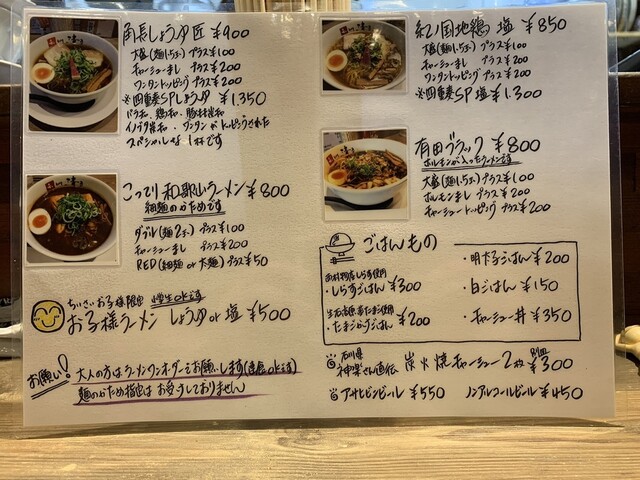 角長しょうゆ匠 ¥900
大盛(麺1.5玉) プラス¥100
チャーシューまし プラス¥200
ワンタントッピング プラス¥200
※四重奏SPしょうゆ ¥1,350
バラ和、鶏和、豚
イノブタ、ワンタンがトッピングされた
スペシャルな1杯です
こってり和歌山ラーメン ¥800
細麺のかためです
ダブル(麺2玉) プラス¥100
チャーシューまし プラス¥200
RED(細麺or太麺) プラス¥50
ちいさいお子様限定 小学生ok
お子様ラーメン しょうゆor塩 ¥500
お願い!
大人の方はラーメンワンオーダーをお願いします
麺のかため指定はお受けしておりません
紀ノ国地鶏 塩 ¥850
大盛(麺1.5玉) プラス¥100
チャーシューまし プラス¥200
ワンタントッピング プラス¥200
※四重奏SP塩 ¥1.300
有田ブラック ¥800
ホルモンが入ったラーメンです
大盛(麺1.5玉) プラス¥100
ホルモンまし プラス¥200
チャーシュートッピング プラス¥200
ごはんもの
しらす使用
・しらすごはん ¥300
たまご使用
・たまごかけごはん ¥200
・明太子ごはん ¥200
・白ごはん ¥150
・チャーシュー丼 ¥350
石川県
神楽さん直伝 炭火焼チャーシュー2枚 別皿 ¥300
アサヒビンビール ¥550 ノンアルコールビール ¥450